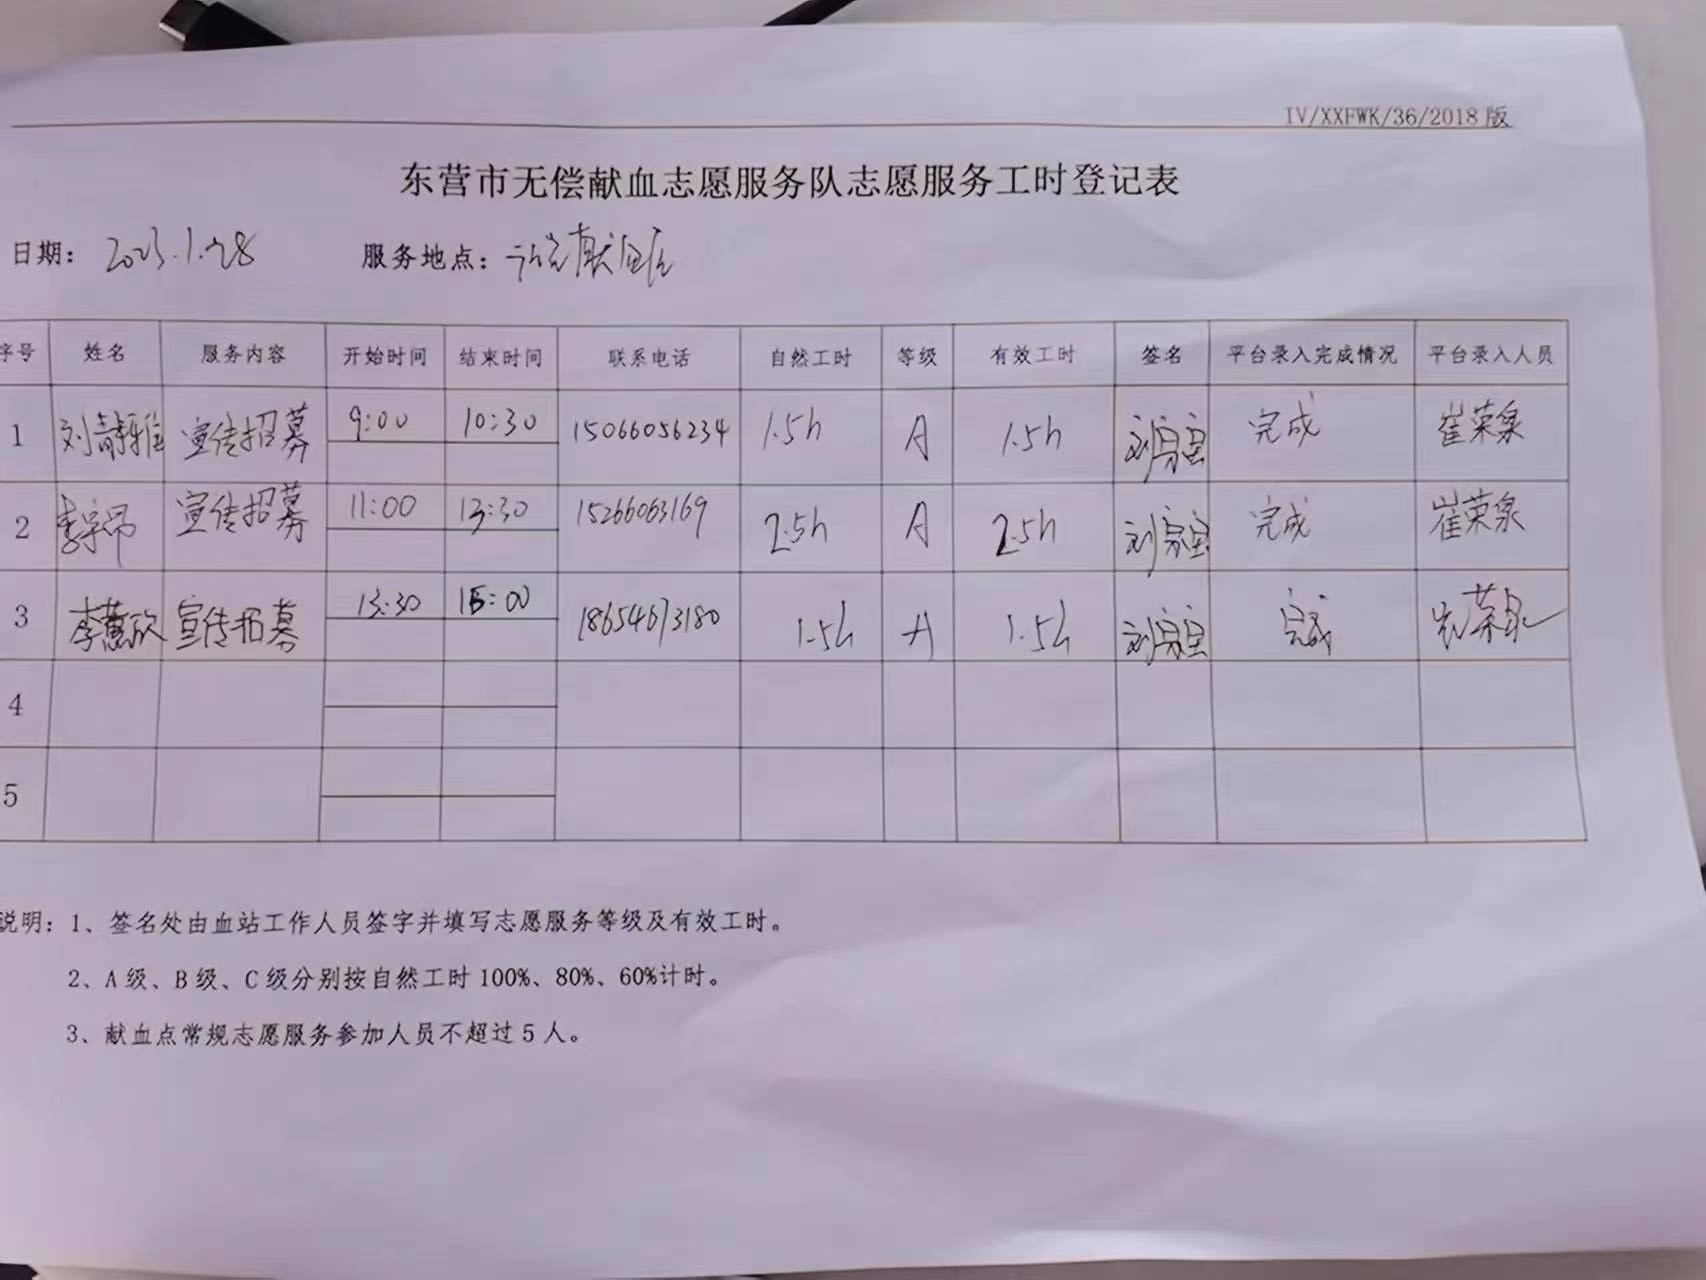 IV/XXFWK/36/2018 版
东营市无偿献血志愿服务队志愿服务工时登记表
日期： 2023.1.28 服务地点： 献血
序号 姓名 服务内容 开始时间 结束时间 联系电话 自然工时 等级 有效工时 签名 平台录入完成情况 平台录入人员
1 刘静雅 宣传招募 9:00 10:30 15066056234 1.5h A 1.5h 刘 完成 崔荣泉
2 李宇昂 宣传招募 11:00 13:30 15266063169 2.5h A 2.5h 刘 完成 崔荣泉
3 李蕙欣 宣传招募 13:30 15:00 18654673180 1.5h A 1.5h 刘 完成 崔荣泉
4
5
说明：1、签名处由血站工作人员签字并填写志愿服务等级及有效工时。
2、A 级、B 级、C 级分别按自然工时 100%、80%、60%计时。
3、献血点常规志愿服务参加人员不超过 5 人。